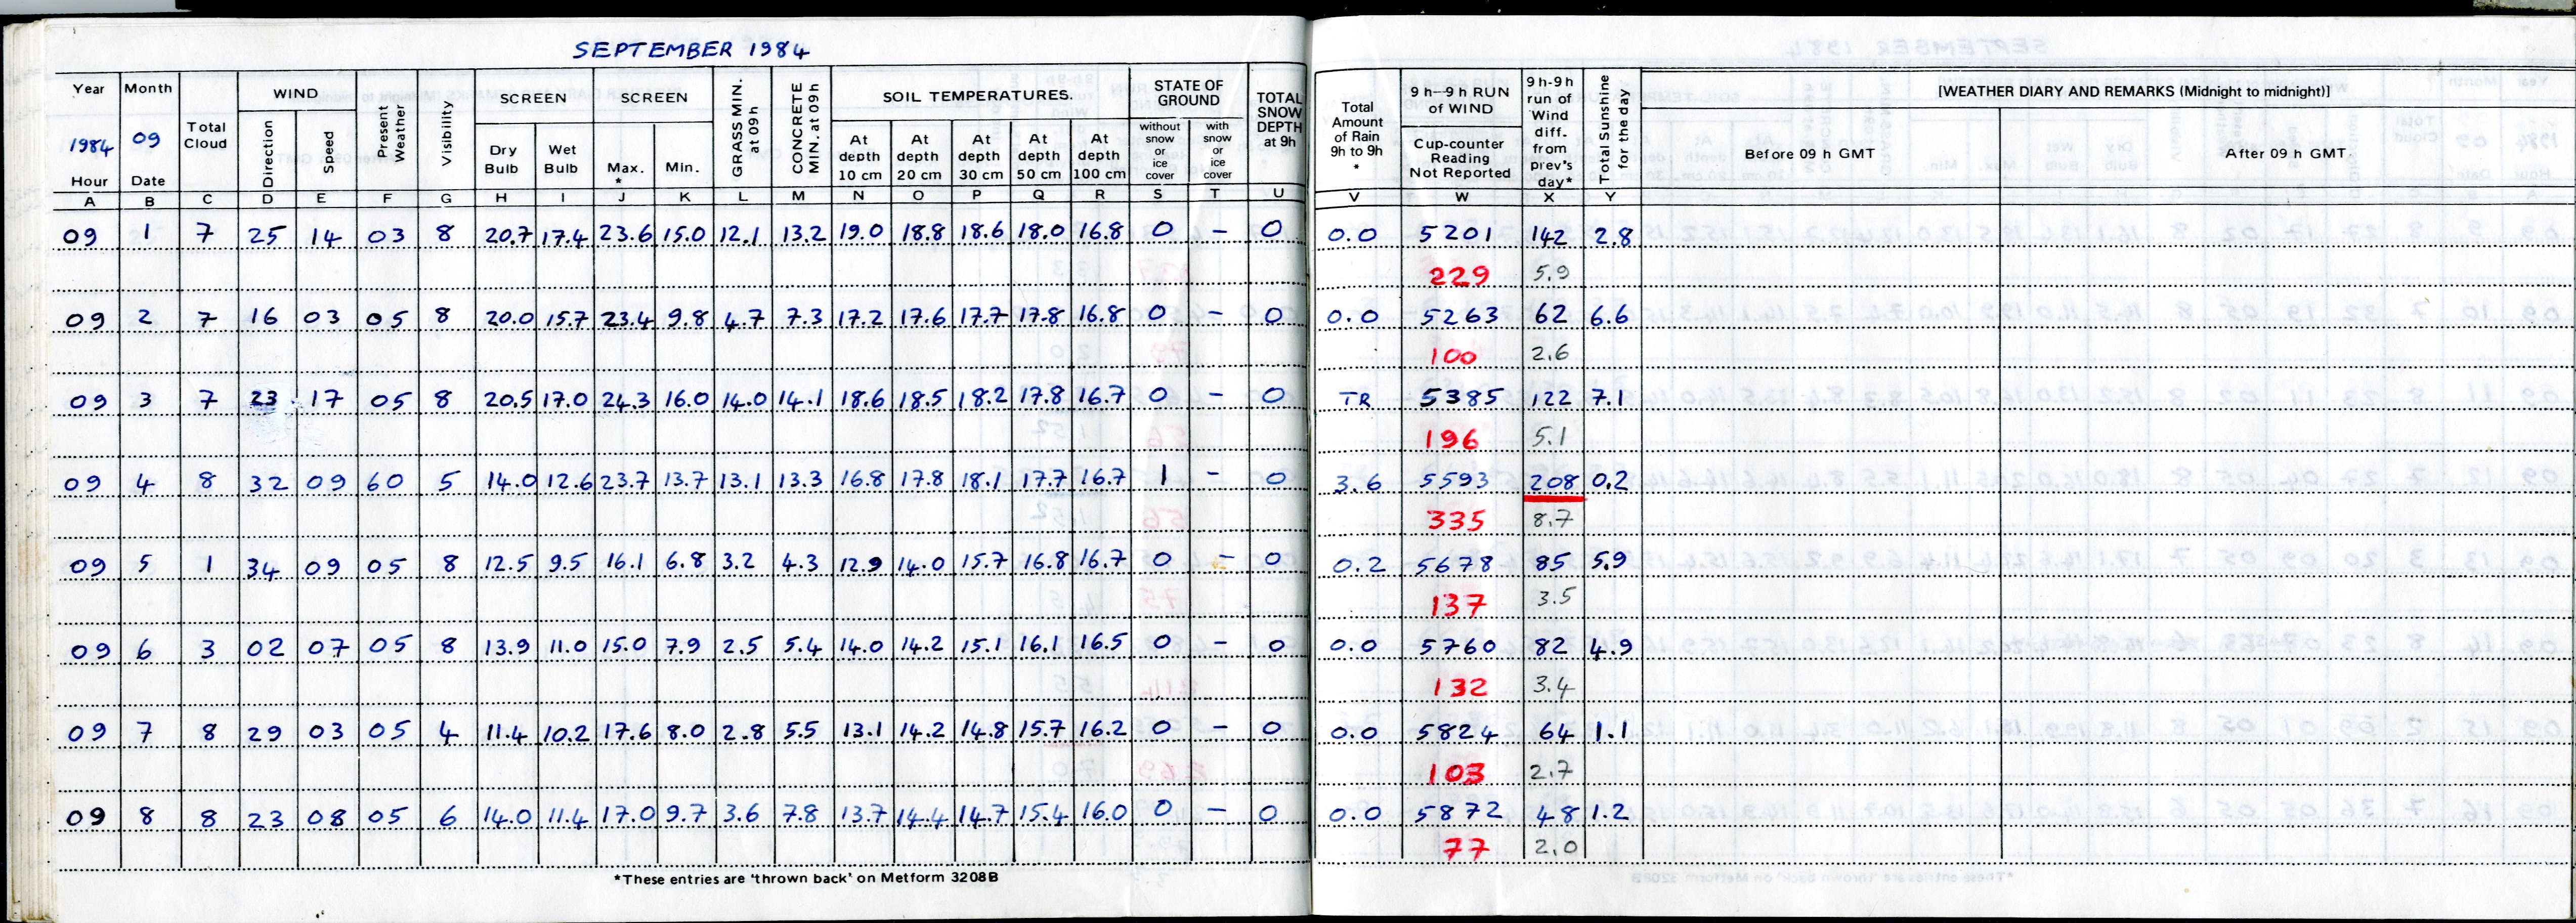 SEPTEMBER 1984
Year Month Total Cloud WIND Present Weather Visibility SCREEN SCREEN GRASS MIN. at 09 h CONCRETE MIN. at 09 h SOIL TEMPERATURES. STATE OF GROUND TOTAL SNOW DEPTH at 9h Total Amount of Rain 9h to 9h * 9 h—9 h RUN of WIND 9 h-9h run of Wind diff. from prev's day* Total Sunshine for the day [WEATHER DIARY AND REMARKS (Midnight to midnight)]
1984 09 Direction Speed Dry Bulb Wet Bulb Max. * Min. At depth 10 cm At depth 20 cm At depth 30 cm At depth 50 cm At depth 100 cm without snow or ice cover with snow or ice cover Cup-counter Reading Not Reported Before 09 h GMT After 09 h GMT.
Hour Date
A B C D E F G H I J K L M N O P Q R S T U V W X Y
09 1 7 25 14 03 8 20.7 17.4 23.6 15.0 12.1 13.2 19.0 18.8 18.6 18.0 16.8 0 – 0 0.0 5201 142 2.8
229 5.9
09 2 7 16 03 05 8 20.0 15.7 23.4 9.8 4.7 7.3 17.2 17.6 17.7 17.8 16.8 0 – 0 0.0 5263 62 6.6
100 2.6
09 3 7 23 17 05 8 20.5 17.0 24.3 16.0 14.0 14.1 18.6 18.5 18.2 17.8 16.7 0 – 0 TR 5385 122 7.1
196 5.1
09 4 8 32 09 60 5 14.0 12.6 23.7 13.7 13.1 13.3 16.8 17.8 18.1 17.7 16.7 1 – 0 3.6 5593 208 0.2
335 8.7
09 5 1 34 09 05 8 12.5 9.5 16.1 6.8 3.2 4.3 12.9 14.0 15.7 16.8 16.7 0 – 0 0.2 5678 85 5.9
137 3.5
09 6 3 02 07 05 8 13.9 11.0 15.0 7.9 2.5 5.4 14.0 14.2 15.1 16.1 16.5 0 – 0 0.0 5760 82 4.9
132 3.4
09 7 8 29 03 05 4 11.4 10.2 17.6 8.0 2.8 5.5 13.1 14.2 14.8 15.7 16.2 0 – 0 0.0 5824 64 1.1
103 2.7
09 8 8 23 08 05 6 14.0 11.4 17.0 9.7 3.6 7.8 13.7 14.4 14.7 15.4 16.0 0 – 0 0.0 5872 48 1.2
77 2.0
*These entries are 'thrown back' on Metform 3208B